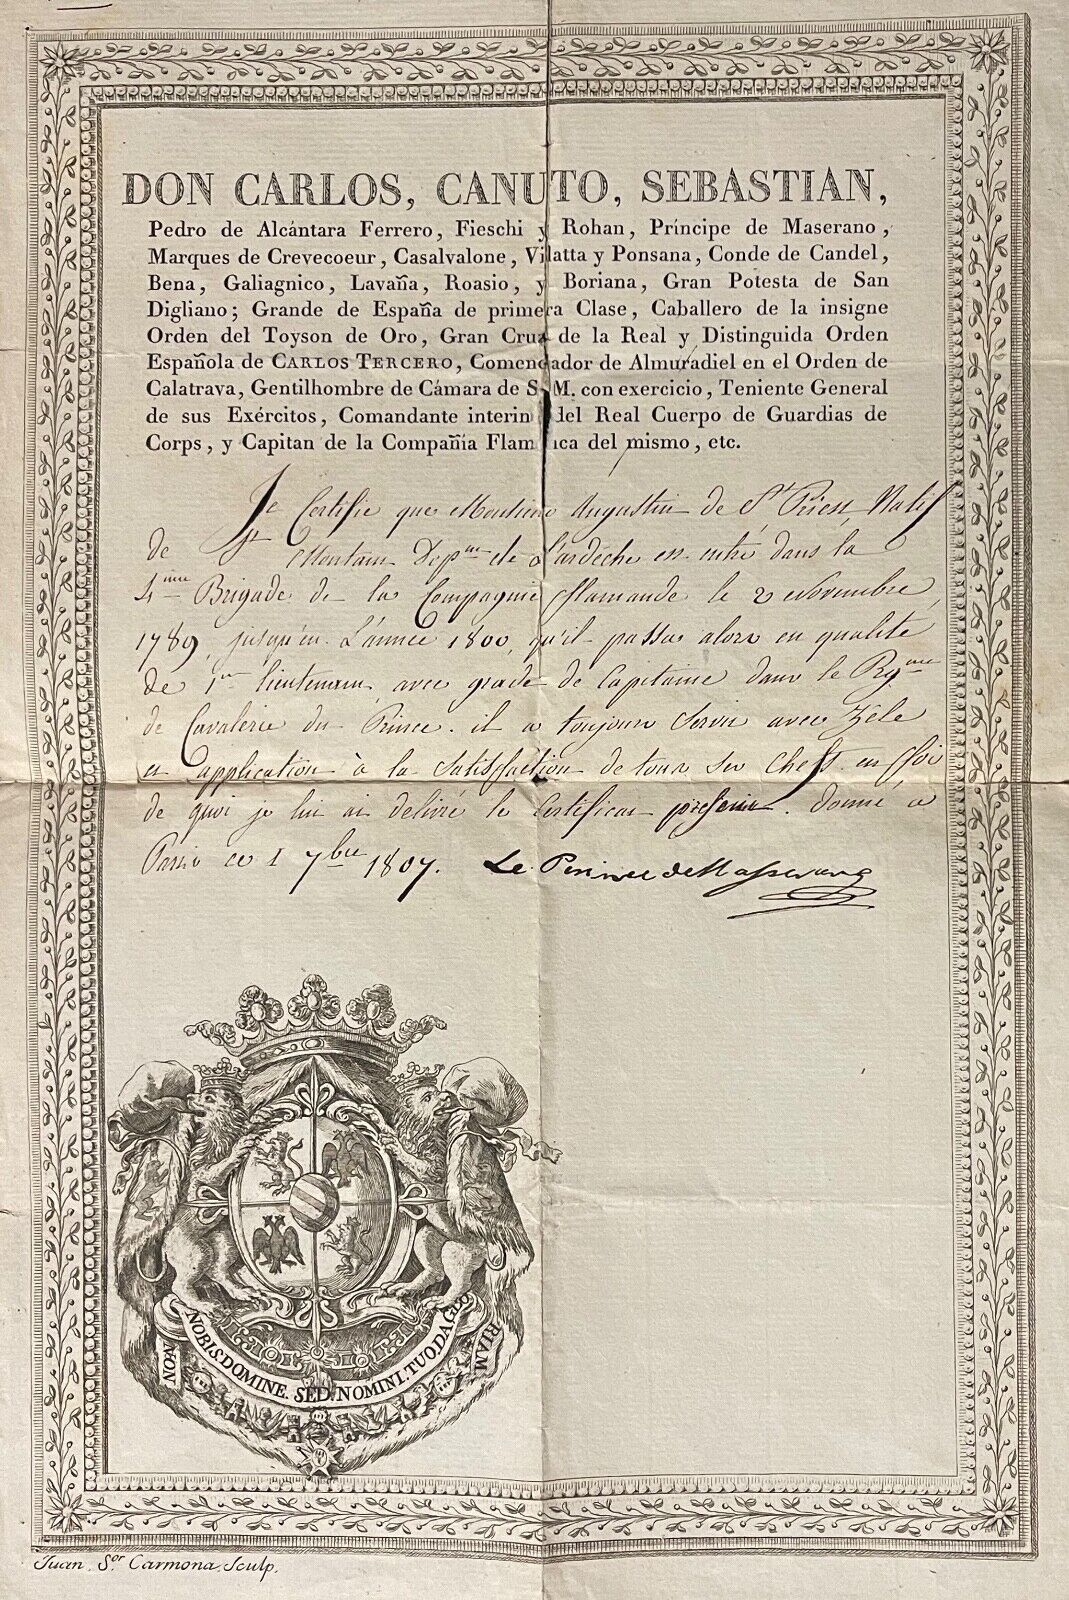 DON CARLOS, CANUTO, SEBASTIAN,
Pedro de Alcántara Ferrero, Fieschi y Rohan, Príncipe de Maserano,
Marques de Crevecoeur, Casalvalone, Vilatta y Ponsana, Conde de Candel,
Bena, Galiagnico, Lavaña, Roasio, y Boriana, Gran Potesta de San
Digliano; Grande de España de primera Clase, Caballero de la insigne
Orden del Toyson de Oro, Gran Cruz de la Real y Distinguida Orden
Española de CARLOS TERCERO, Comendador de Almuradiel en el Orden de
Calatrava, Gentilhombre de Cámara de S. M. con exercicio, Teniente General
de sus Exércitos, Comandante interino del Real Cuerpo de Guardias de
Corps, y Capitan de la Compañía Flamenca del mismo, etc.
Je Certifie que Monsieur Augustin de St Priest Natif
de St Montain Depm de L'ardèche est entré dans la
4ime Brigade de la Compagnie flamande le 2 Novembre
1789, jusqu'en L'année 1800, qu'il passa alors en qualité
de 1er lieutenant avec grade de Capitaine dans le
de Cavalerie du Prince. il a toujours servi avec Zèle
et application à la satisfaction de tous ses Cheffs. en foi
de quoi je lui ai délivré le Certificat présent. donné à
Paris ce 1 7bre 1807. Le Prince de Masserano
NON NOBIS. DOMINE. SED. NOMINI. TUO. DA GLORIAM
Juan. Sor Carmona Sculp.